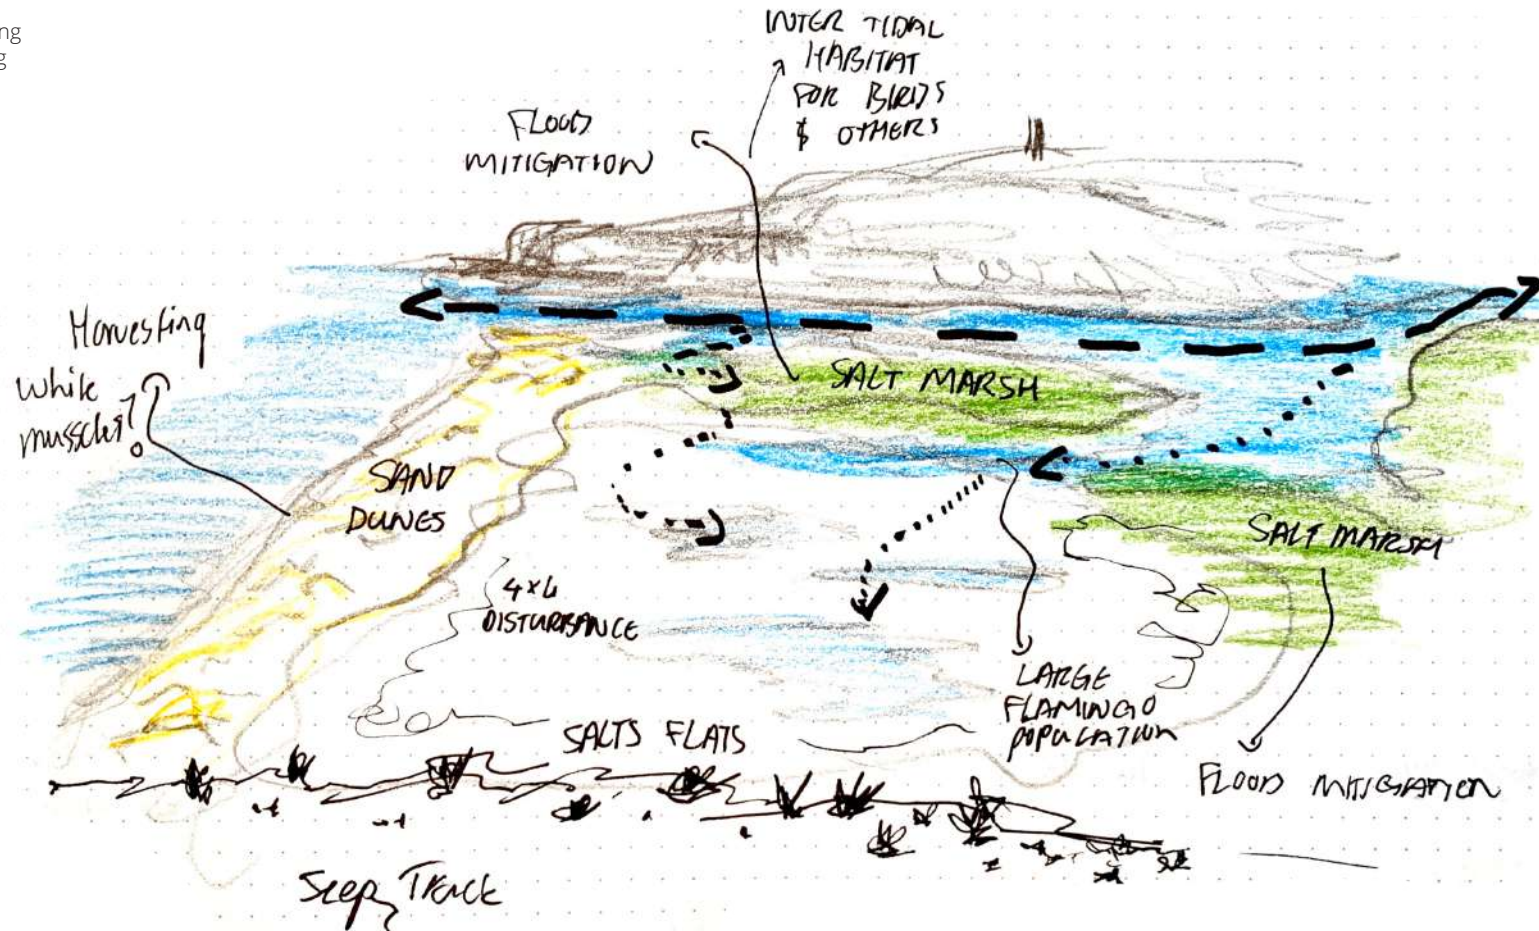 ing
g
INTER TIDAL
HABITAT
FOR BIRDS
& OTHERS
FLOOD
MITIGATION
Harvesting
while
musscles?
SALT MARSH
SAND
DUNES
SALT MARSH
4x4
DISTURBANCE
LARGE
FLAMINGO
POPULATION
SALTS FLATS
FLOOD MITIGATION